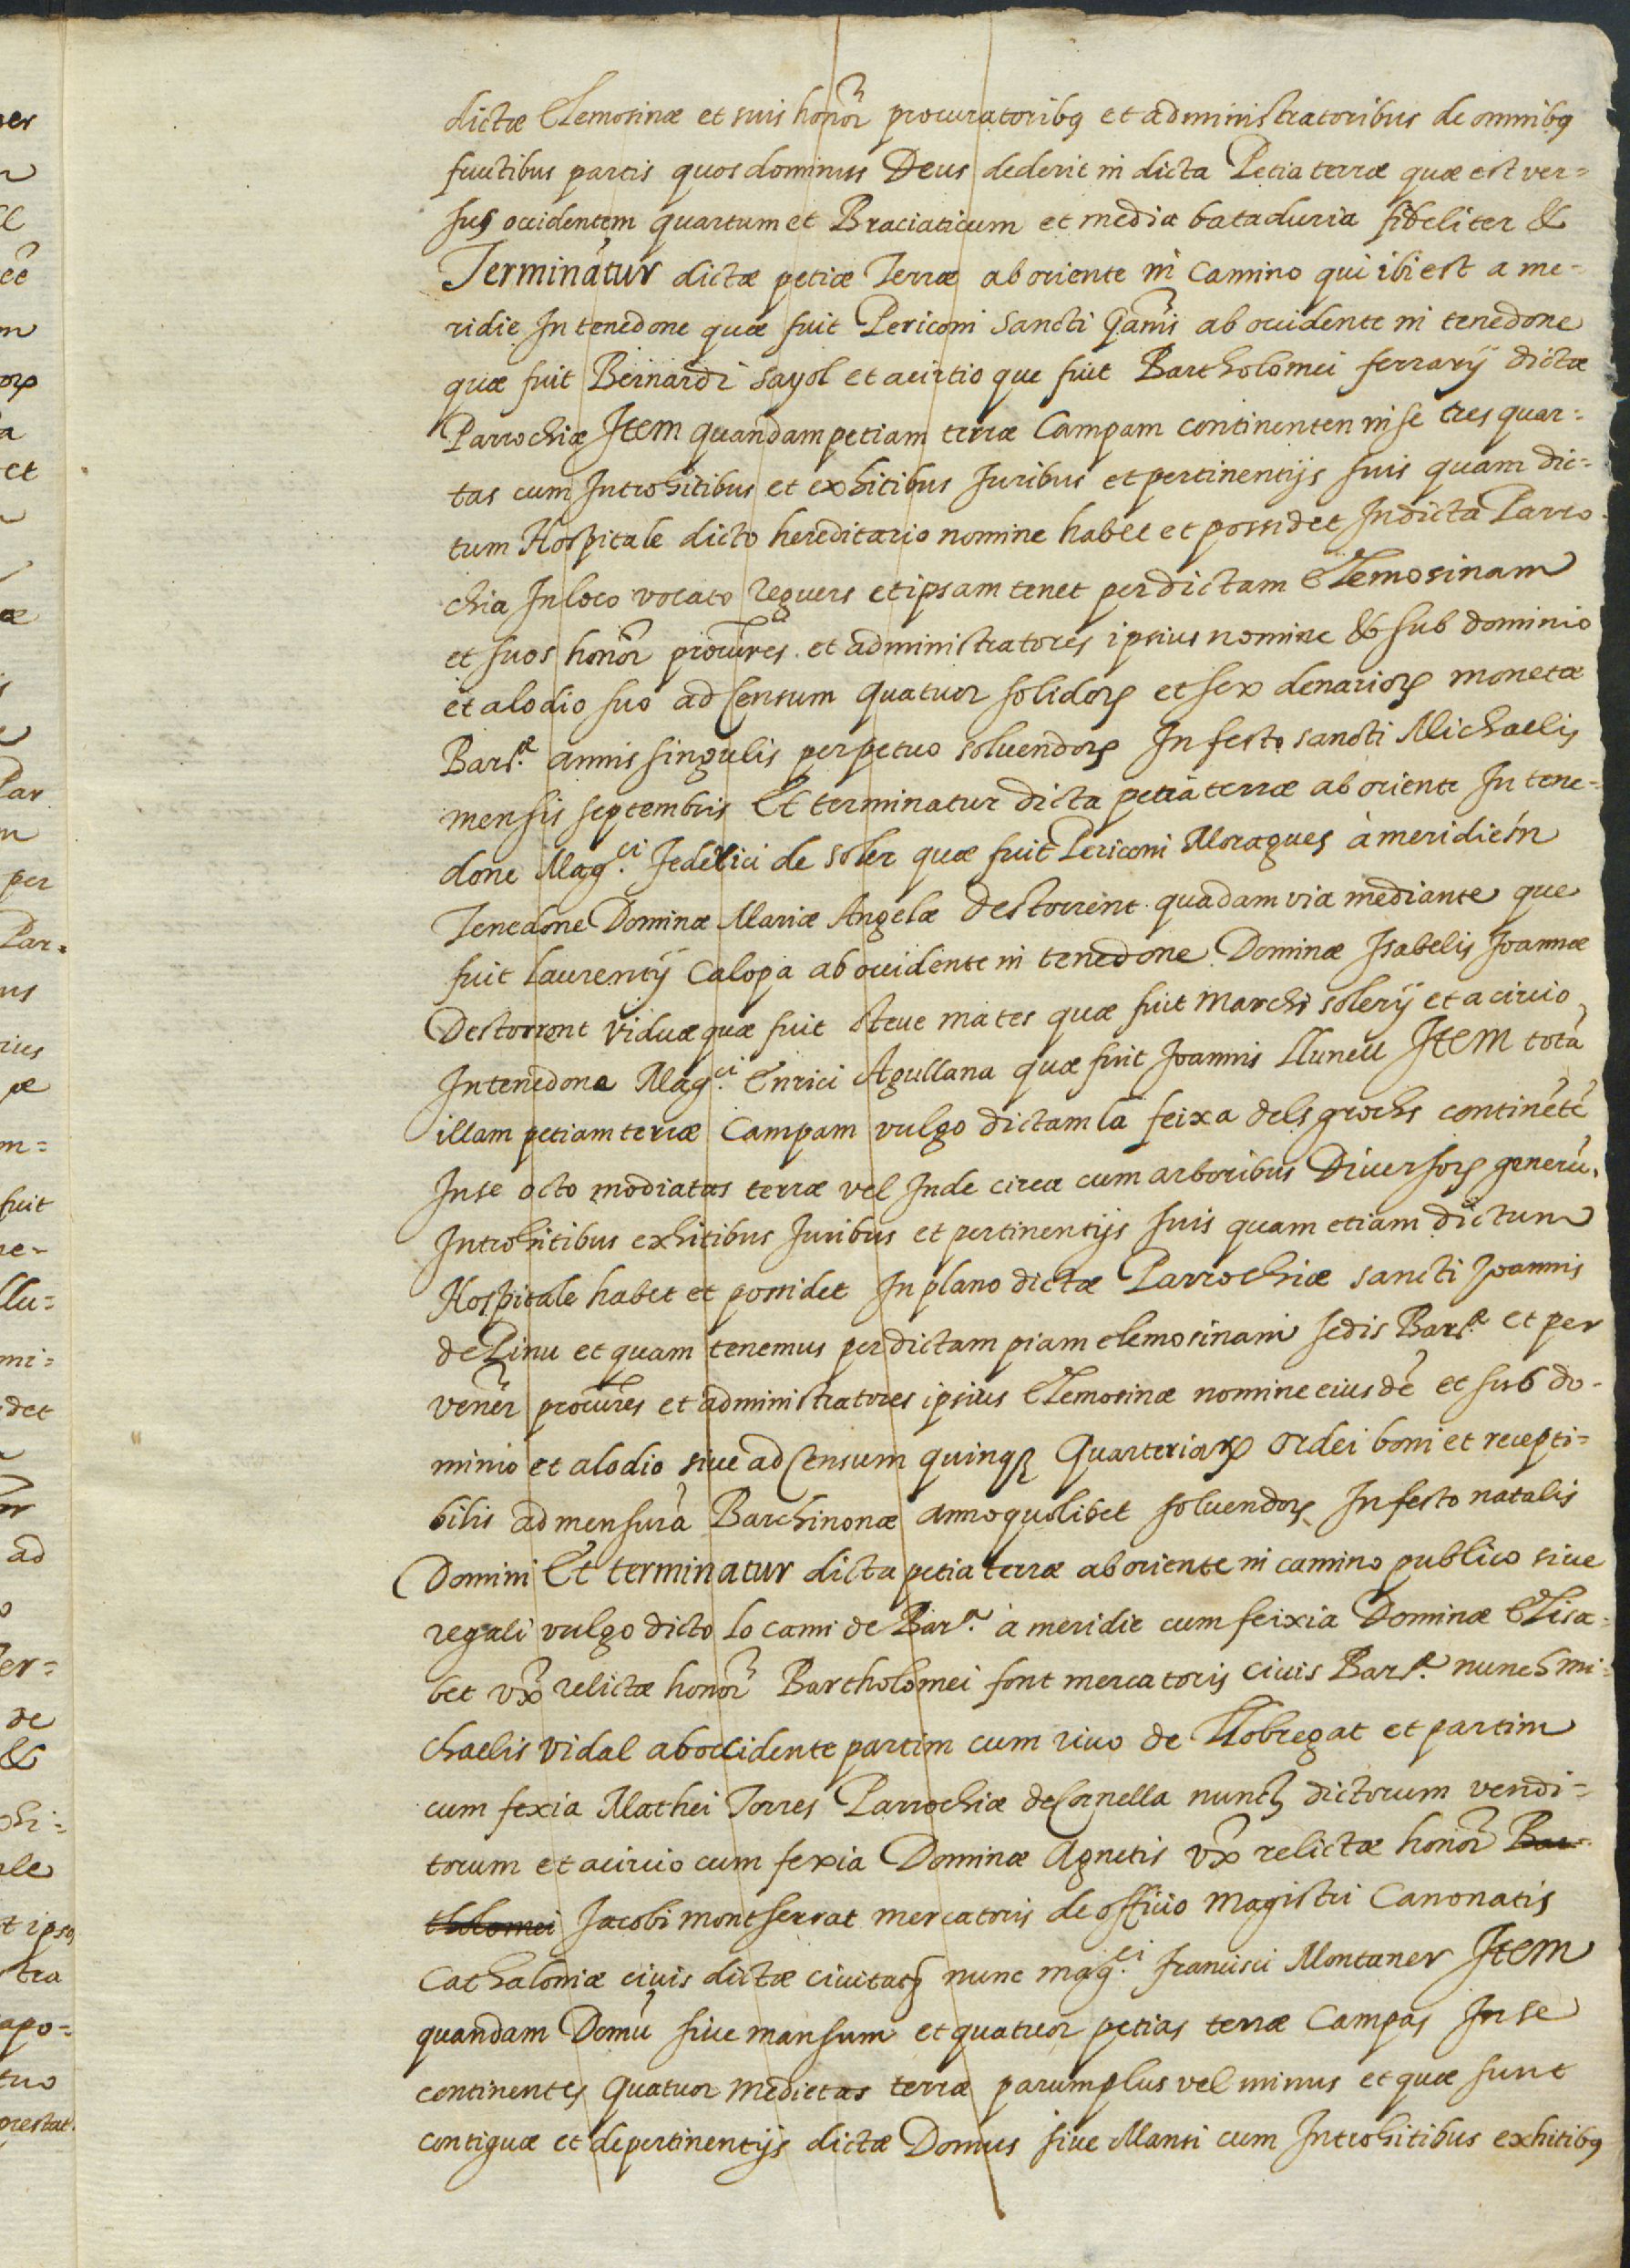 dictæ Elemosinæ et suis honor̃ procuratoribꝯ et administratoribus de omnibꝯ
fructibus partis quos dominus Deus dederit in dicta Petia terræ quæ est ver=
sus occidentem quartum et Braciaticum et media bataduria fideliter &
Terminatur dictæ petiæ Terræ ab oriente in Camino qui ibi est a me=
ridie In tenedone quæ fuit Periconi Sancti Joañis ab occidente in tenedone
quæ fuit Bernardi Sayol et a circio que fuit Bartholomei ferrarij dictæ
Parrochiæ Item quandam petiam terræ Campam continenten in se tres quar=
tas cum Introhitibus et exhitibus Iuribus et pertinentijs suis quam dic=
tum Hospitale dicto hereditario nomine habet et possidet In dicta Parro
chia In loco vocato reguers et ipsam tenet per dictam Elemosinam
et suos honor̃ procur̃es et administratores ipsius nomine & sub dominio
et alodio suo ad Censum quatuor solidoꝝ et sex denarioꝝ monetæ
Barᵉ. annis singulis perpetuo soluendoꝝ In festo sancti Michaelis
mensis septembris Et terminatur dicta petia terræ ab oriente In tene=
done Mag.ci Federici de soler quæ fuit Periconi Moragues à meridie in
Tenedone Dominæ Mariæ Angelæ Destorrent quadam via mediante que
fuit Laurentij Calopa ab occidente in tenedone Dominæ Isabelis Joannæ
Destorrent Viduæ quæ fuit steue mates quæ fuit Marchi solerij et a circio
In tenedone Mag.ci Enrici Agullana quæ fuit Joannis Llunell Item totã
illam petiam terræ Campam vulgo dictam la feixa dels grochs continẽtẽ
In se octo modiatas terræ vel Inde circa cum arboribus Diuersoꝝ generũ
Introhitibus exhitibus Iuribus et pertinentijs suis quam etiam dictum
Hospitale habet et possidet In plano dictæ Parrochiæ sancti Joannis
de Pinu et quam tenemus per dictam piam elemosinam sedis Barᵉ. et per
vener̃ procur̃es et administratores ipsius Elemosinæ nomine eiusdẽ et sub do-
minio et alodio siue ad Censum quinqꝫ Quarteriaꝝ ordei boni et recepti=
bilis ad mensurã Barchinonæ anno quolibet soluendoꝝ In festo natalis
Domini Et terminatur dicta petia terræ ab oriente in camino publico siue
regali vulgo dicto lo cami de Barᵃ. à meridie cum feixia Dominæ Elisa=
bet vx̃ relictæ honor̃ Bartholomei font mercatoris ciuis Barᵉ. nunch mi=
chaelis vidal ab occidente partim cum riuo de Llobregat et partim
cum fexia Mathei Torres Parrochiæ de Cornella nunch dictorum vendi=
torum et a circio cum fexia Dominæ Agnetis vx̃ relictæ honor̃ Bar-
tholomei Jacobi montserrat mercatoris de officio Magistri Canonatis
Cathaloniæ ciuis dictæ ciuitatꝭ nunc mag.ci Francisci Montaner Item
quandam Domũ siue mansum et quatuor petias terræ Campas In se
continentes Quatuor medietas terræ parum plus vel minus et quæ sunt
contiguæ et de pertinentijs dictæ Domus siue Mansi cum Introhitibus exhitibꝯ